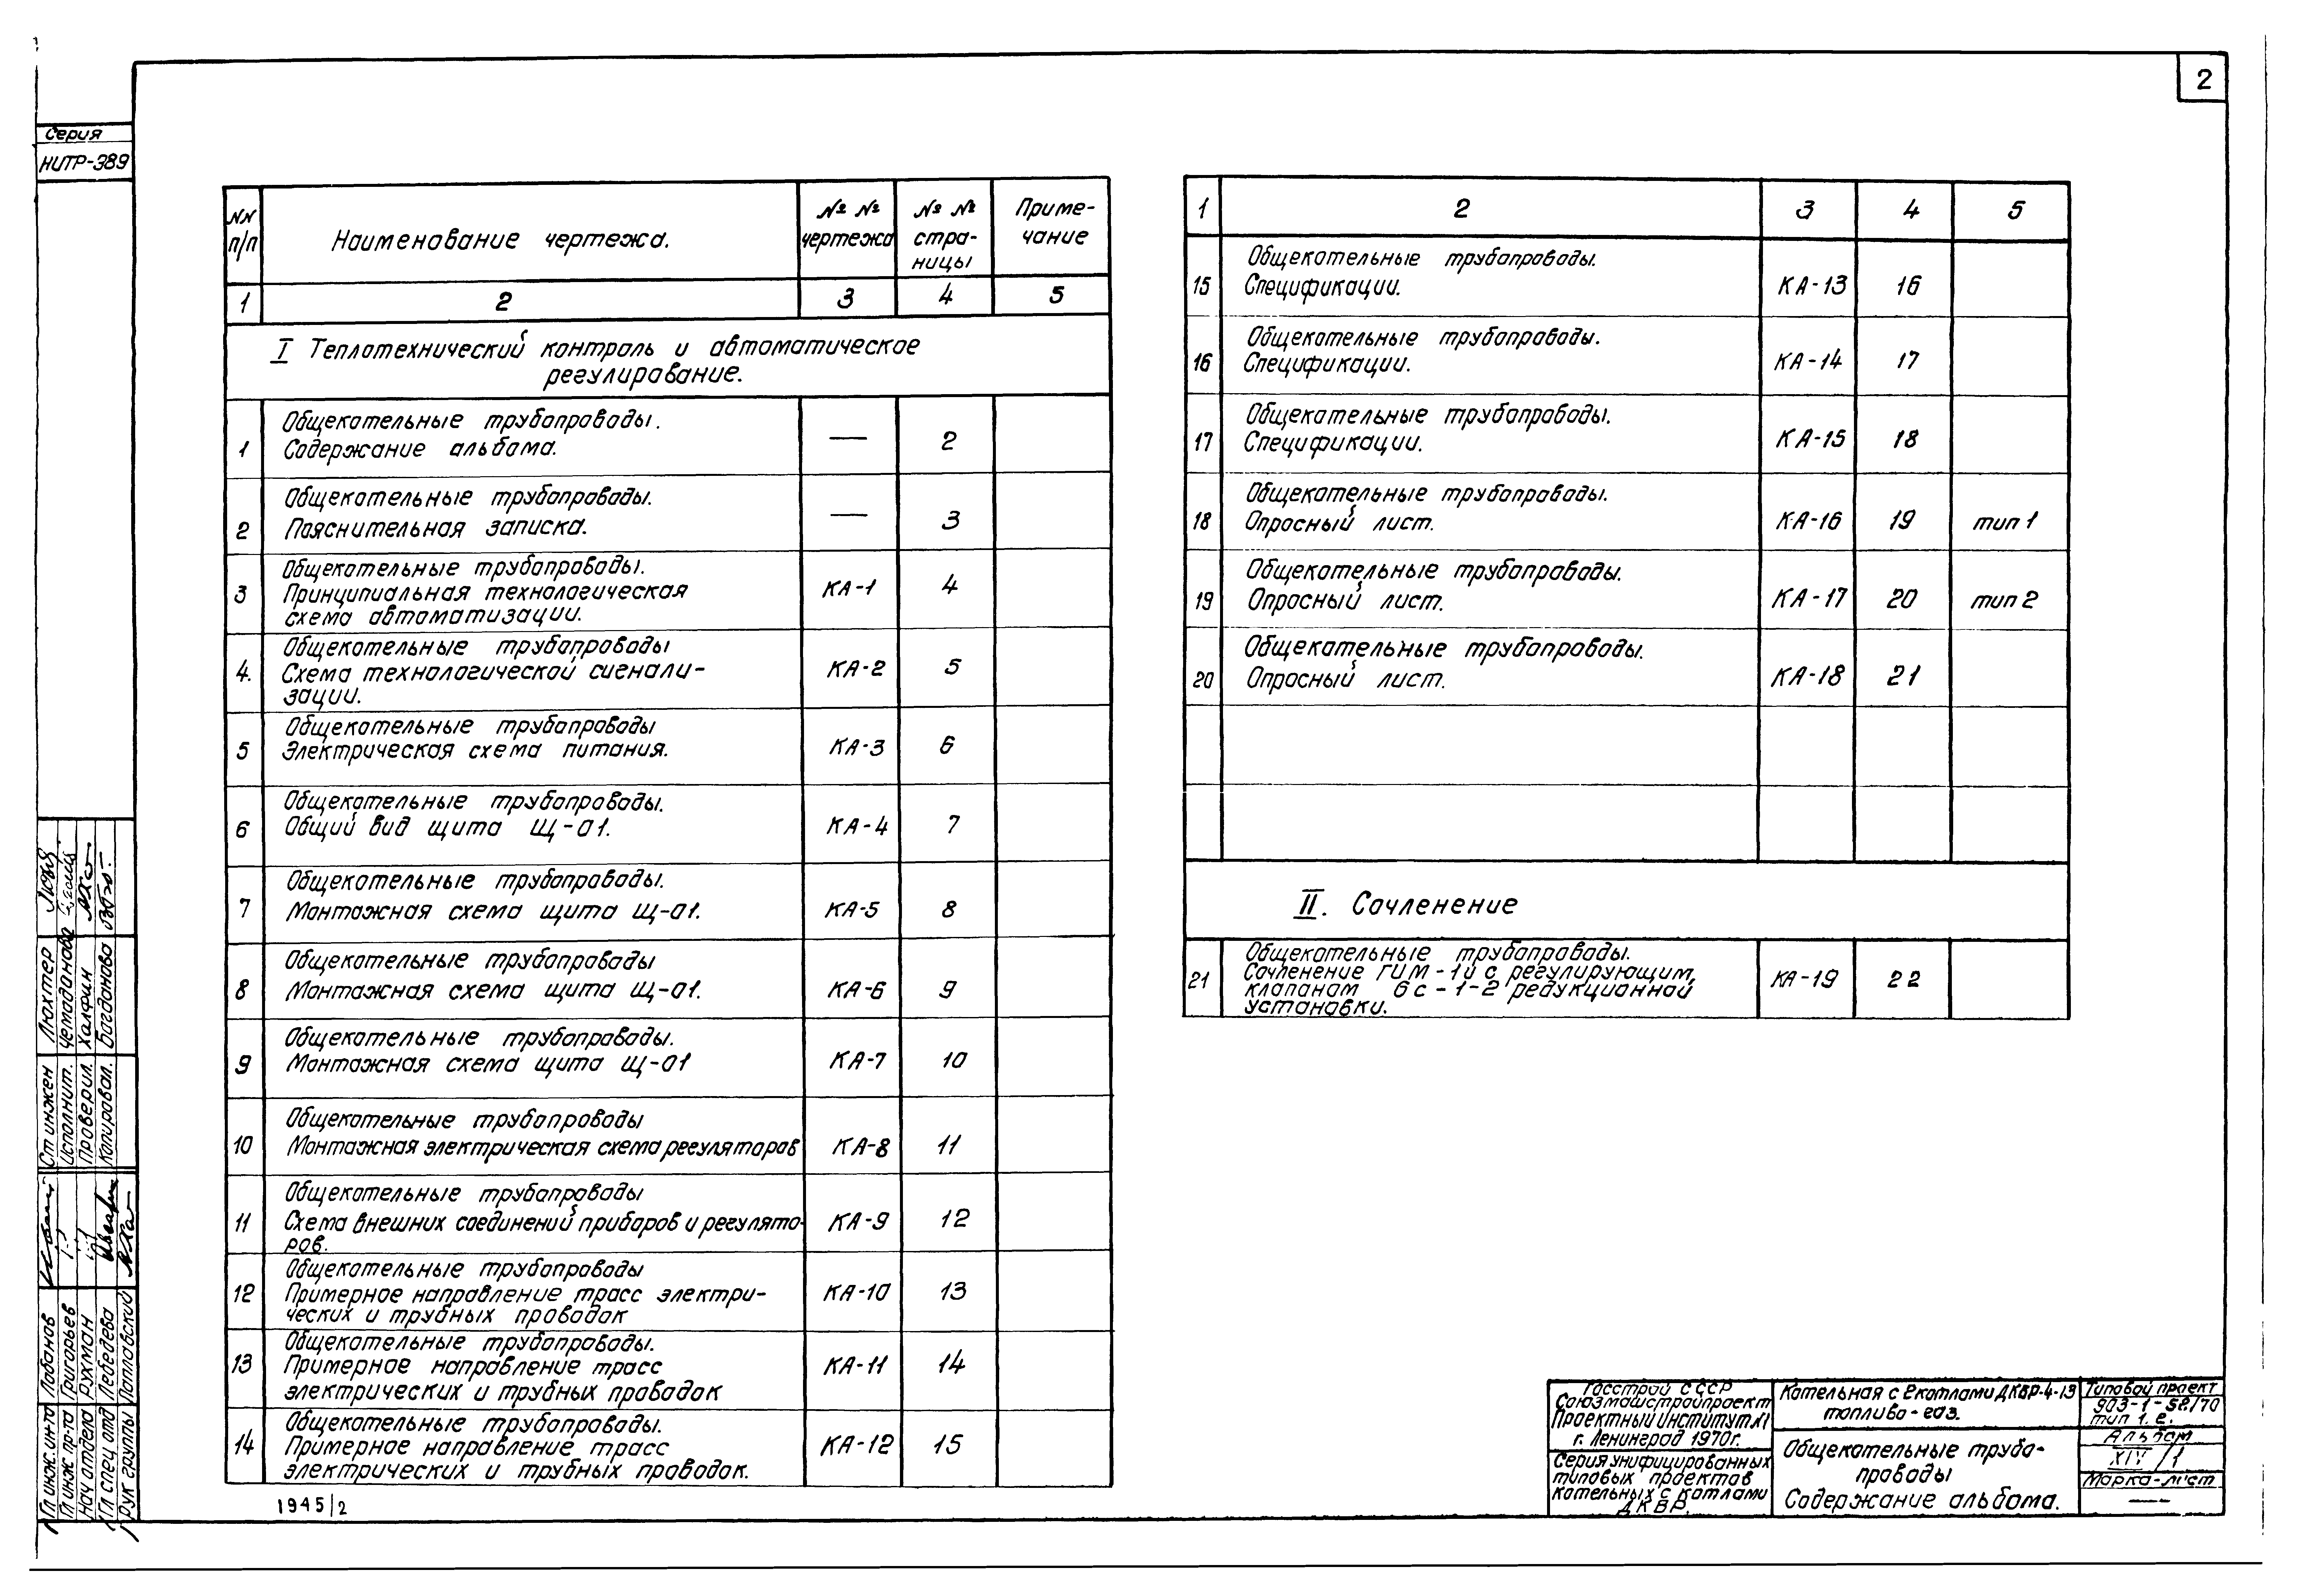 2
Серия
НИТР-389
NN п/п
Наименование чертежа.
№ № чертежа
№ № стра-
ницы
Приме-
чание
1 2 3 4 5
I Теплотехнический контроль и автоматическое
регулирование.
Общекотельные трубопроводы.
1 Содержание альбома. — 2
Общекотельные трубопроводы.
2 Пояснительная записка. — 3
Общекотельные трубопроводы.
3 Принципиальная технологическая КА-1 4
схема автоматизации.
Общекотельные трубопроводы
4. Схема технологической сигнали- КА-2 5
зации.
Общекотельные трубопроводы
5 Электрическая схема питания. КА-3 6
Общекотельные трубопроводы.
6 Общий вид щита Щ-01. КА-4 7
Общекотельные трубопроводы.
7 Монтажная схема щита Щ-01. КА-5 8
Общекотельные трубопроводы
8 Монтажная схема щита Щ-01. КА-6 9
Общекотельные трубопроводы.
9 Монтажная схема щита Щ-01 КА-7 10
Общекотельные трубопроводы
10 Монтажная электрическая схема регуляторов КА-8 11
Общекотельные трубопроводы
11 Схема внешних соединений приборов и регулято- КА-9 12
ров.
Общекотельные трубопроводы
12 Примерное направление трасс электри- КА-10 13
ческих и трубных проводок
Общекотельные трубопроводы.
13 Примерное направление трасс КА-11 14
электрических и трубных проводок
Общекотельные трубопроводы.
14 Примерное направление трасс КА-12 15
электрических и трубных проводок.
1945/2
1 2 3 4 5
Общекотельные трубопроводы.
15 Спецификации. КА-13 16
Общекотельные трубопроводы.
16 Спецификации. КА-14 17
Общекотельные трубопроводы.
17 Спецификации. КА-15 18
Общекотельные трубопроводы.
18 Опросный лист. КА-16 19 тип 1
Общекотельные трубопроводы.
19 Опросный лист. КА-17 20 тип 2
Общекотельные трубопроводы.
20 Опросный лист. КА-18 21
II. Сочленение
Общекотельные трубопроводы.
21 Сочленение ГИМ-1И с регулирующим КА-19 22
клапаном 6с-1-2 редукционной
установки.
Госстрой СССР
Союзмашстройпроект
Проектный институт №1
г. Ленинград 1970г.
Серия унифицированных
типовых проектов
котельных с котлами
ДКВР.
Котельная с 2 котлами ДКВР-4-13
топливо - газ.
Общекотельные трубо-
проводы
Содержание альбома.
Типовой проект
903-1-52/70
тип 1.2.
Альбом
XIV/1
Марка-лист
—
Ст инжен Люхтер
Исполнит. Чемоданова
Проверил. Халфин
Копировал. Богданова
Гл инж. ин-та Лобанов
Гл инж пр-та Григорьев
Нач отдела Рухман
Гл спец отд Лебедева
Рук группы Поплавский